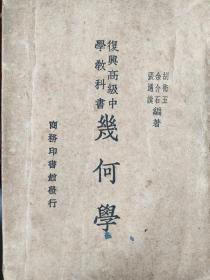 胡術五
余介石
張通謨
編著
復興高級中
學教科書
幾何學
商務印書館發行